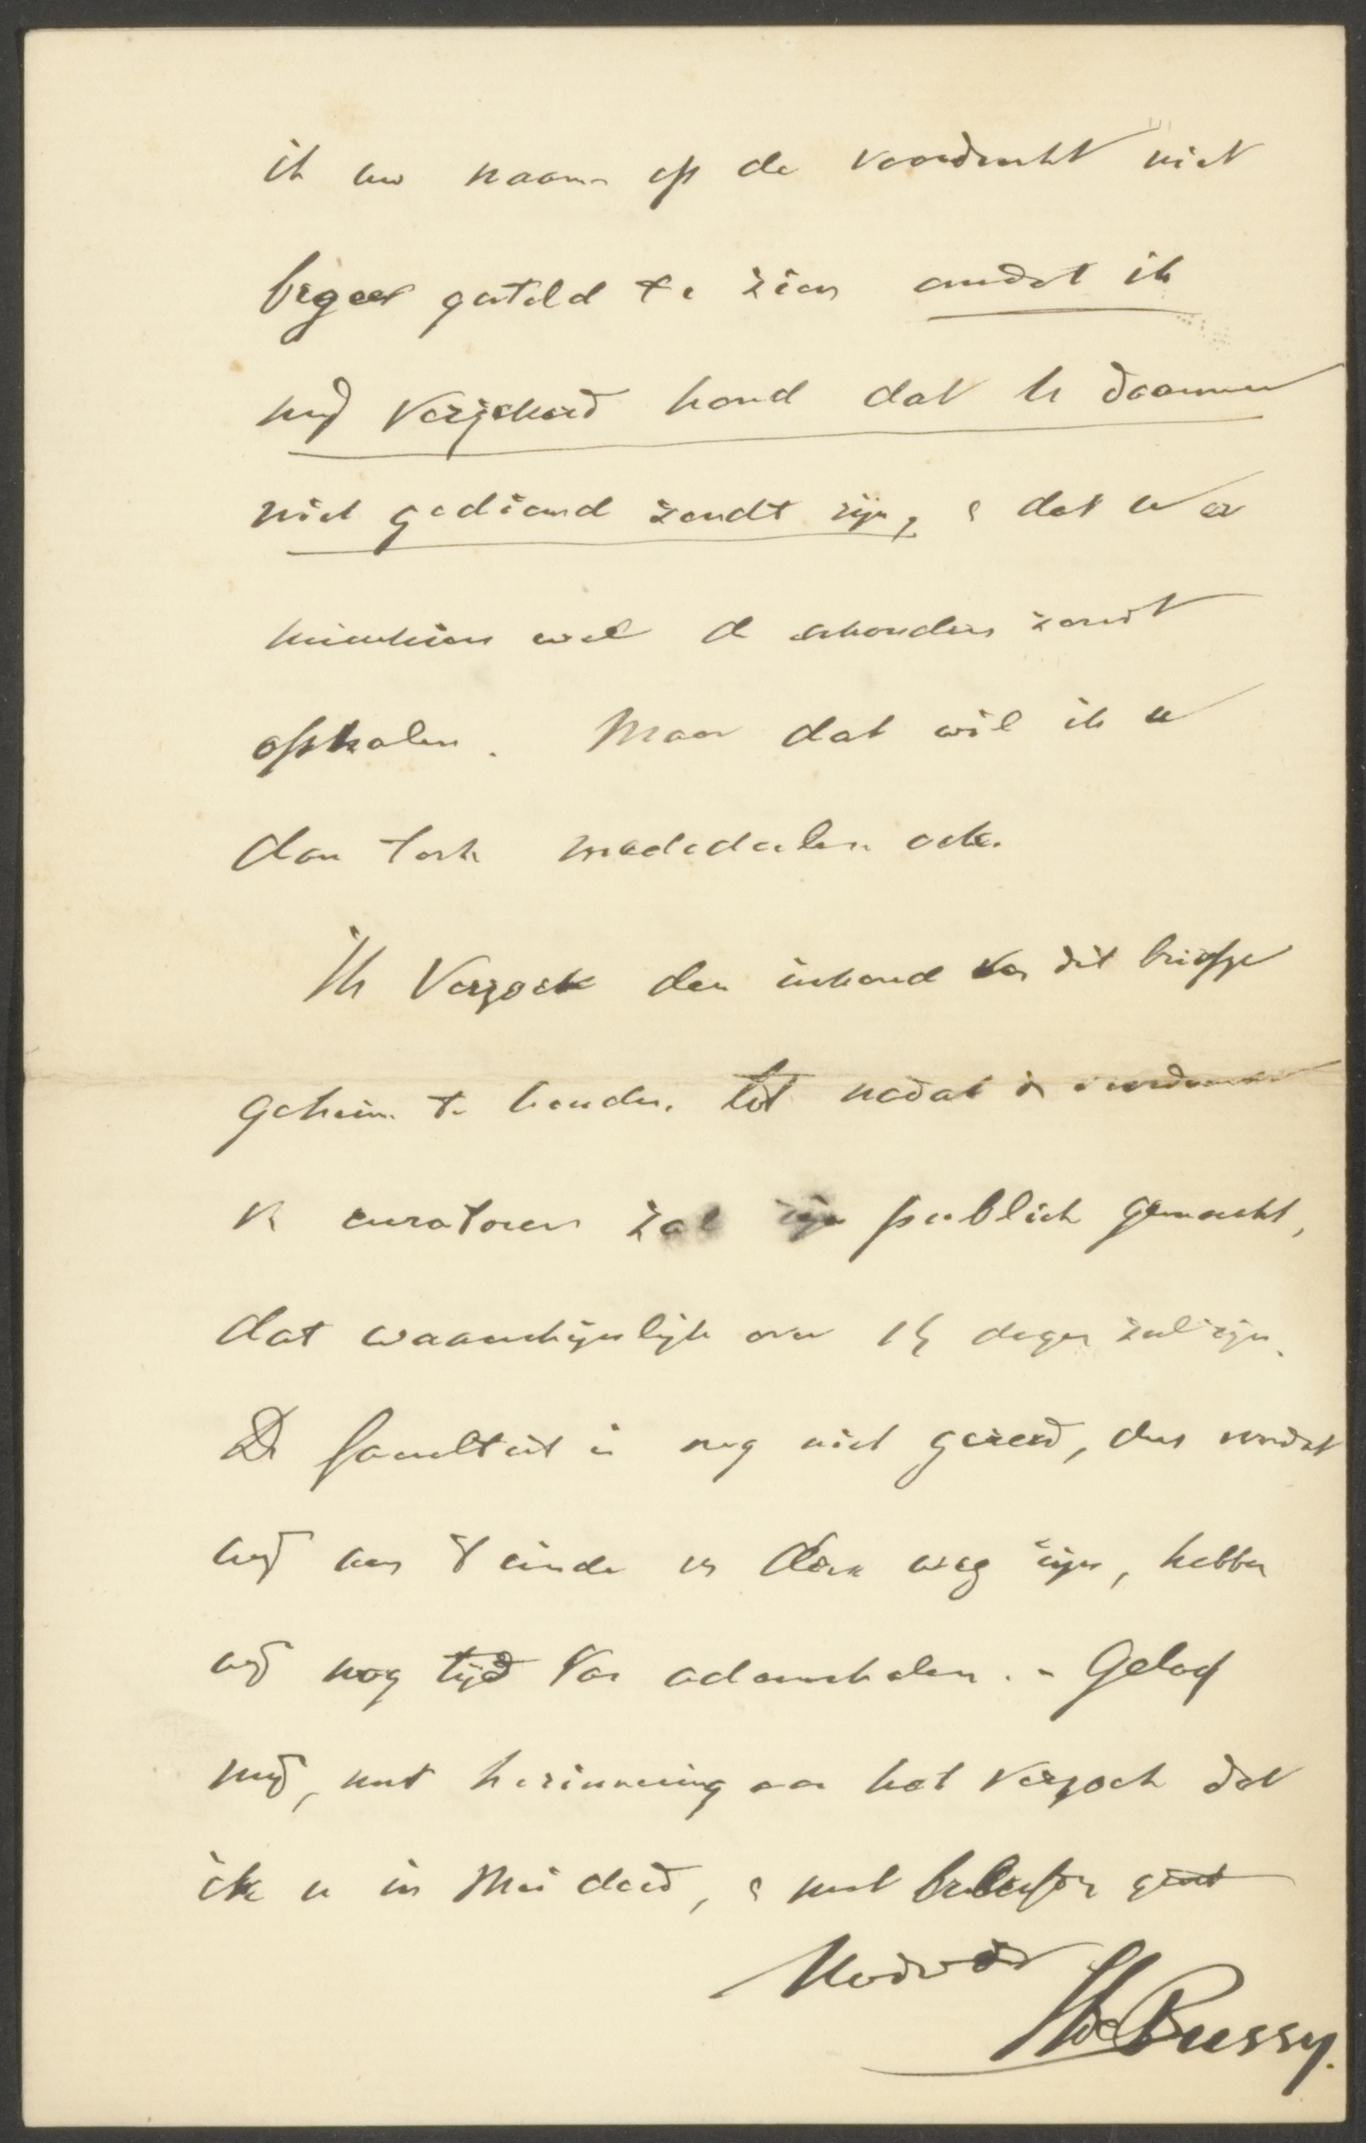 ik uw naam op de voordracht niet
begeer gesteld te zien omdat ik
mij verzekerd houd dat U daarmee
niet gediend zoudt zijn, & dat U er
misschien wel de schouders zoudt
ophalen. Maar dat wil ik u
dan toch mededeelen ook.
Ik verzoek den inhoud van dit briefje
geheim te houden tot nadat de voordracht
v. curatoren zal zijn publiek gemaakt,
dat waarschijnlijk over 14 dagen zal zijn.
De faculteit is nog niet gereed, dus voordat
wij aan 't einde v. dien weg zijn, hebben
wij nog tijd van ademhalen. - Geloof
mij, met herinnering aan het verzoek dat
ik u in Mei deed, & met beleefden groet
Uwdwdr
de Bussy.